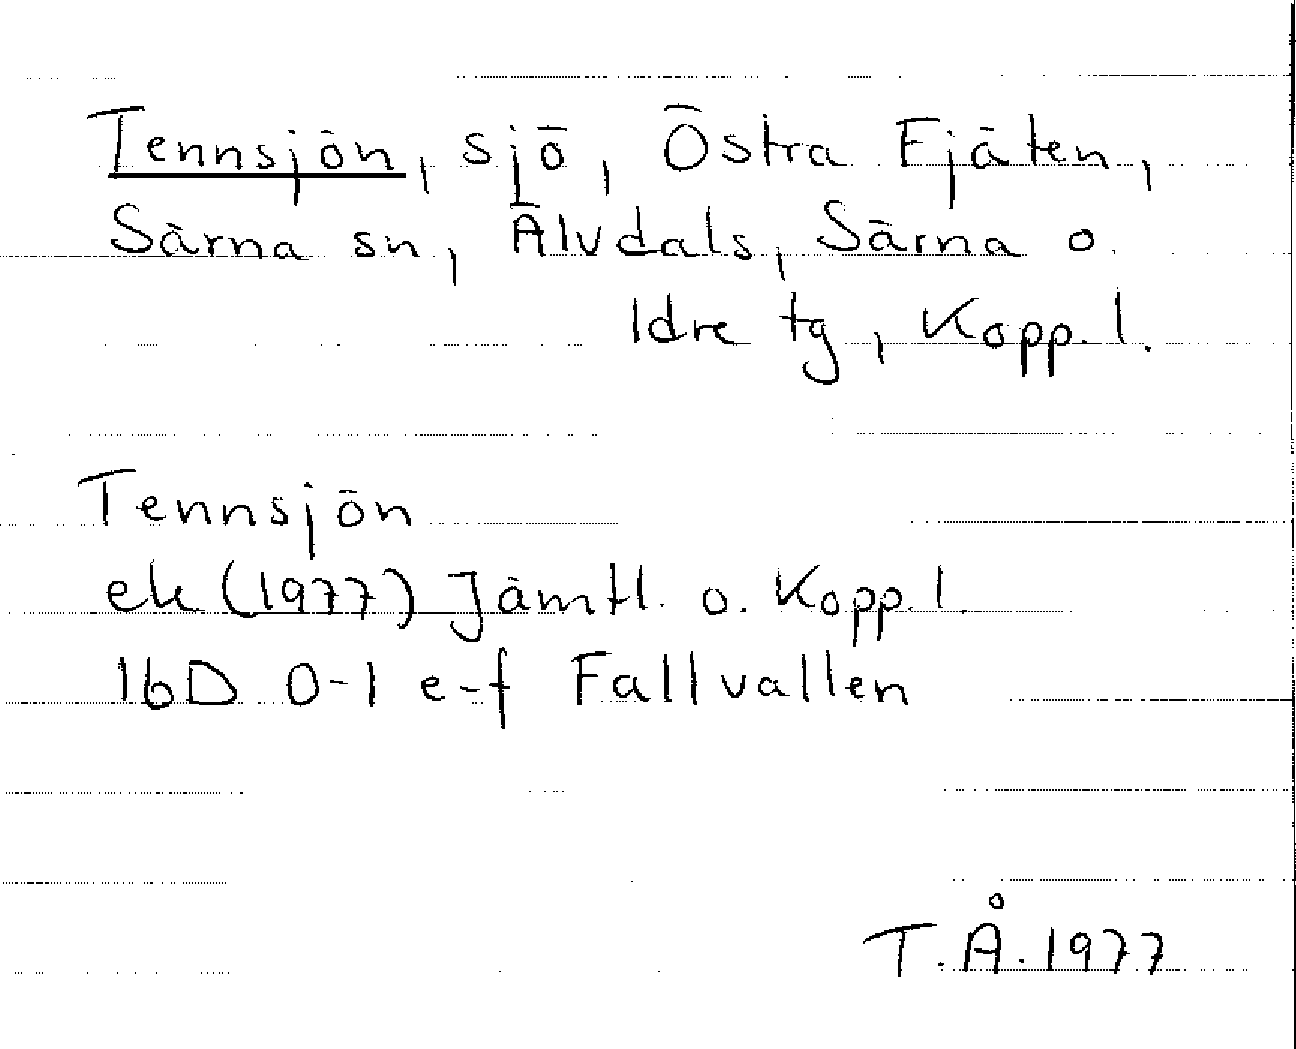 Tennsjön, sjö, Östra Fjäten,
Särna sn, Älvdals, Särna o.
Idre tg, Kopp. l.
Tennsjön
ek (1977) Jämtl. o. Kopp. l.
16D 0-1 e-f Fallvallen
T.Å. 1977